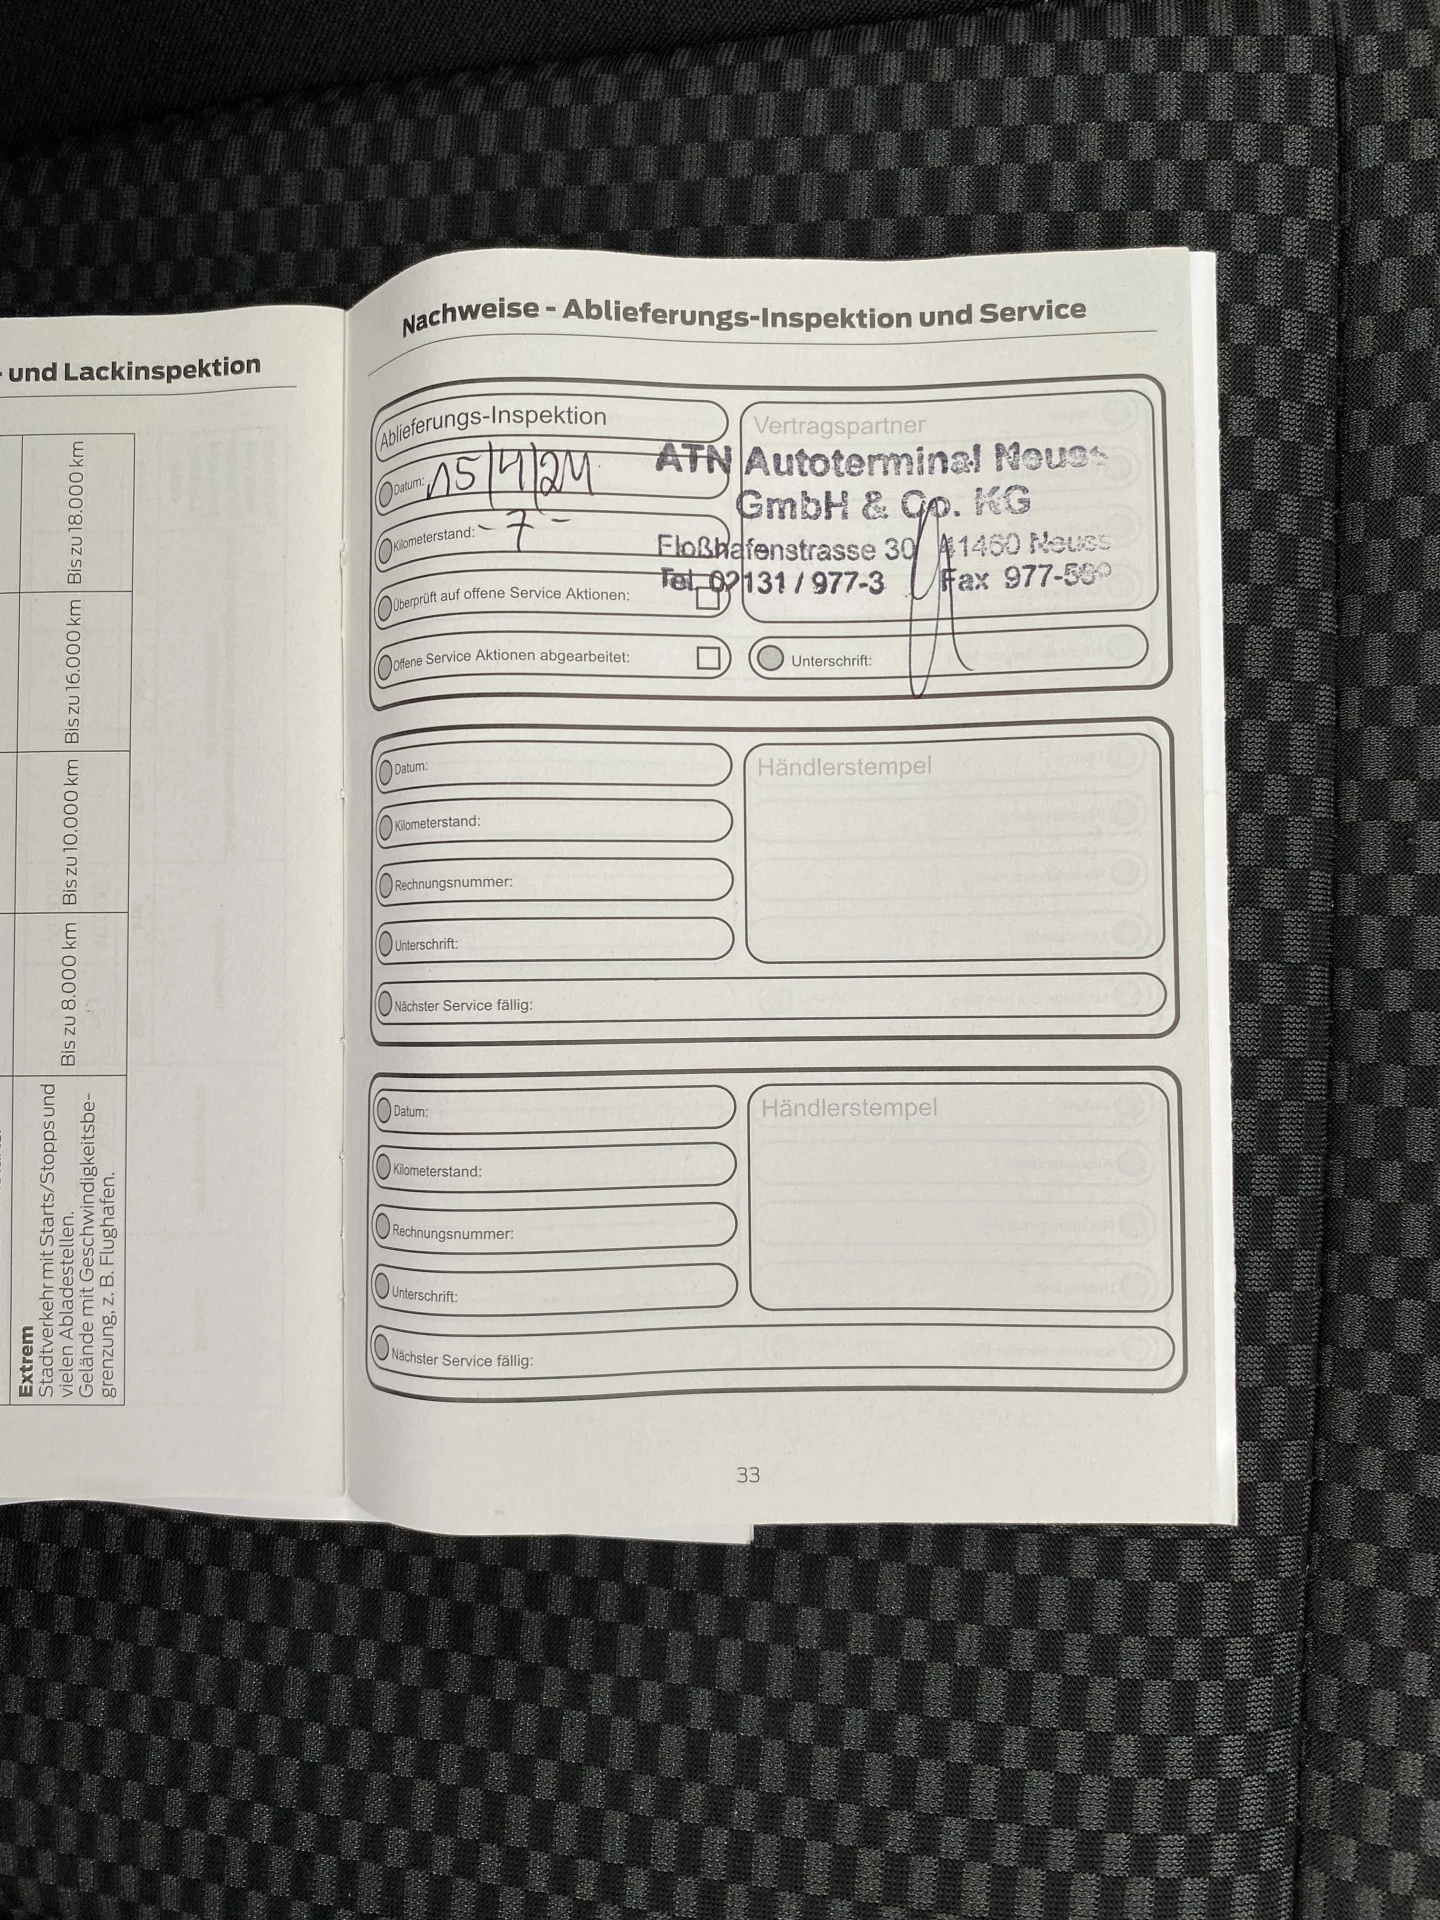 - und Lackinspektion
Bis zu 8.000 km Bis zu 10.000 km Bis zu 16.000 km Bis zu 18.000 km
Extrem
Stadtverkehr mit Starts/Stopps und
vielen Abladestellen.
Gelände mit Geschwindigkeitsbe-
grenzung, z. B. Flughafen.
Nachweise - Ablieferungs-Inspektion und Service
Ablieferungs-Inspektion
Datum: 15/4/24
Kilometerstand: - 7 -
Überprüft auf offene Service Aktionen:
Offene Service Aktionen abgearbeitet:
Vertragspartner
ATN Autoterminal Neuss
GmbH & Co. KG
Floßhafenstrasse 30 41460 Neuss
Tel. 02131 / 977-3 Fax
Unterschrift:
Datum:
Kilometerstand:
Rechnungsnummer:
Unterschrift:
Händlerstempel
Nächster Service fällig:
Datum:
Kilometerstand:
Rechnungsnummer:
Unterschrift:
Händlerstempel
Nächster Service fällig:
33